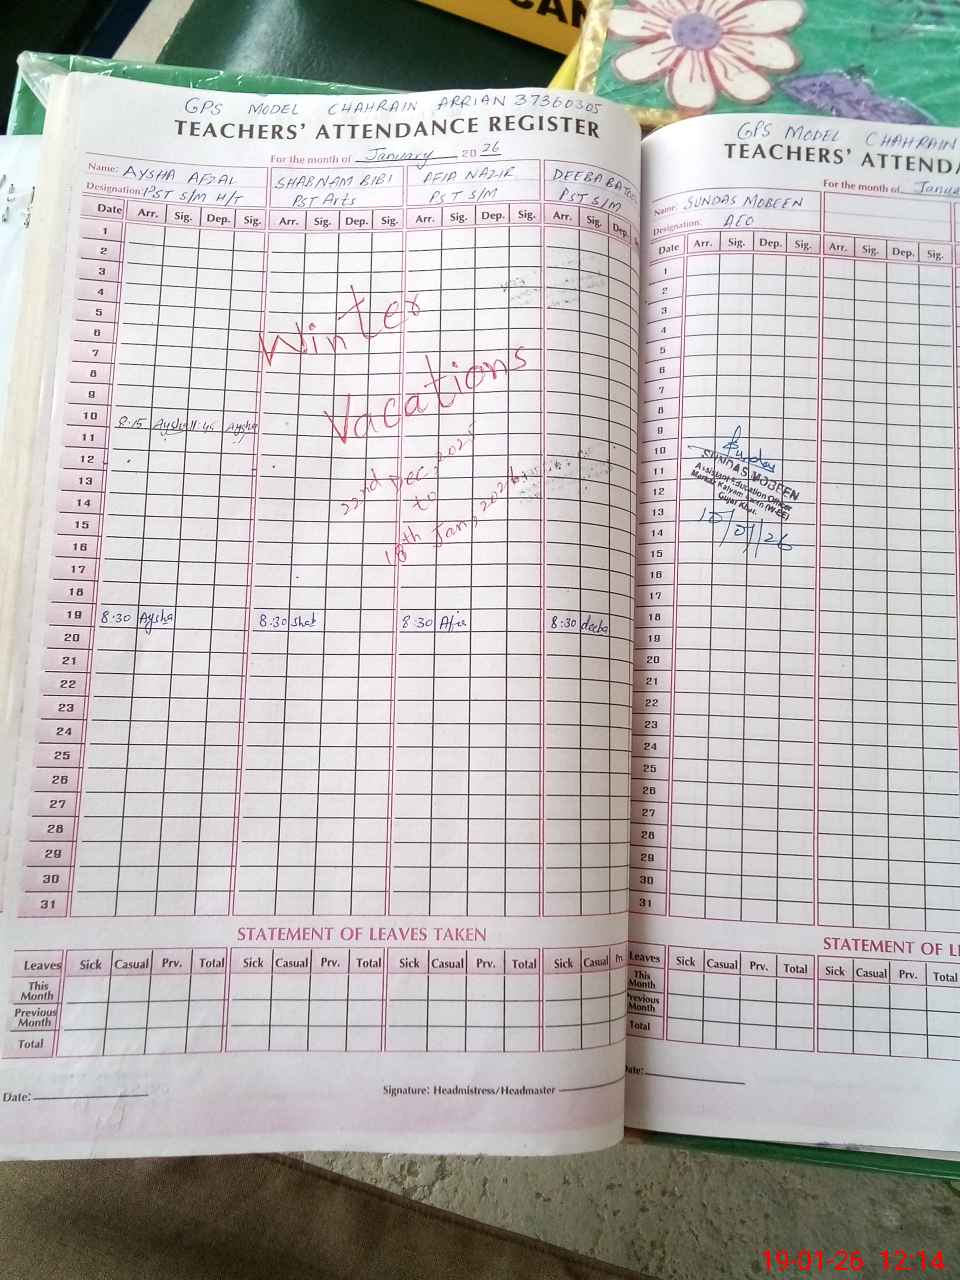 CAN
GPS MODEL CHAHRAIN ARRIAN 37360305
TEACHERS' ATTENDANCE REGISTER
For the month of January 2026
Name: AYSHA AFZAL SHABNAM BIBI AFIA NAZIR DEEBA
Designation: PST S/M H/T PST Arts PST S/M PST S/M
Date Arr. Sig. Dep. Sig. Arr. Sig. Dep. Sig. Arr. Sig. Dep. Sig. Arr. Sig. Dep.
1
2
3
4
5
6
7
8
9
10 8:15 Aysha 11:45 Aysha
11
12
13
14
15
16
17
18
19 8:30 Aysha 8:30 Shab 8:30 Afia 8:30 deeba
20
21
22
23
24
25
26
27
28
29
30
31
Winter
Vacations
22nd Dec, 2025
to
18th Jan, 2026
STATEMENT OF LEAVES TAKEN
Leaves Sick Casual Prv. Total Sick Casual Prv. Total Sick Casual Prv. Total Sick Casual Pr.
This Month
Previous Month
Total
Date:
Signature: Headmistress/Headmaster
GPS MODEL CHAHRAIN
TEACHERS' ATTENDA
For the month of Janua
Name: SUNDAS MOBEEN
Designation: AEO
Date Arr. Sig. Dep. Sig. Arr. Sig. Dep. Sig.
1
2
3
4
5
6
7
8
9
10
11
12
13
14
15
16
17
18
19
20
21
22
23
24
25
26
27
28
29
30
31
SUNDAS MOBEEN
Assistant Education Officer
Markaz (W-EE)
Gujar Khan
10/01/26
STATEMENT OF LE
Leaves Sick Casual Prv. Total Sick Casual Prv. Total
This Month
Previous Month
Total
Date:
19-01-26 12:14